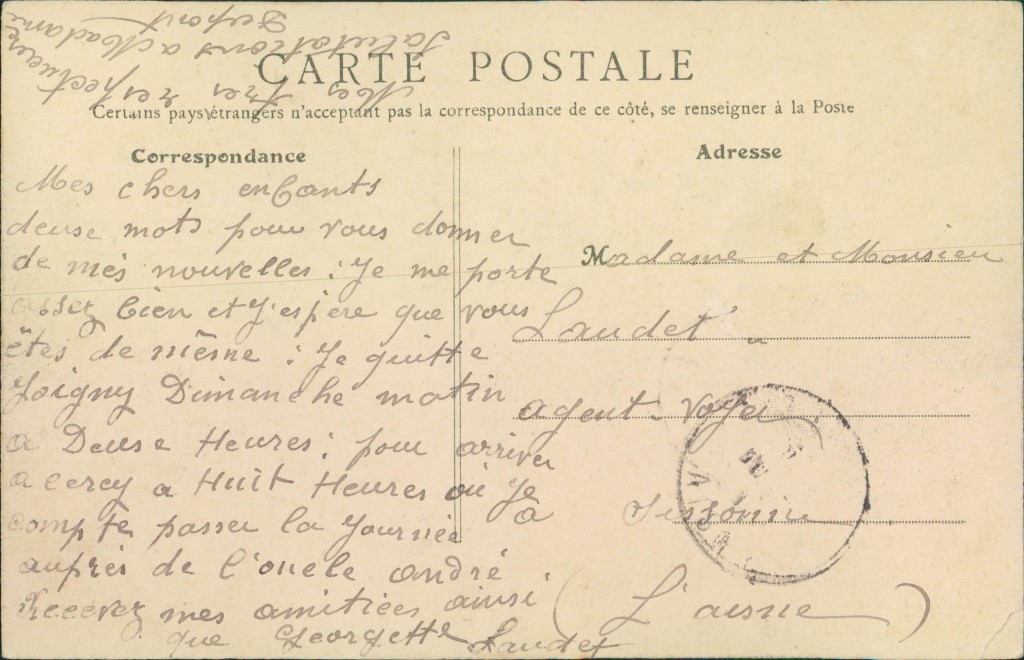 Mes très respectueuses
salutations a Madame
Dupont
CARTE POSTALE
Certains pays étrangers n'acceptent pas la correspondance de ce côté, se renseigner à la Poste
Correspondance
Mes chers enfants
deuse mots pour vous donner
de mes nouvelles : Je me porte
assez bien et J'espère que vous
êtes de même : Je quitte
Joigny Dimanche matin
a Deuse Heures : pour arriver
a cercy a Huit Heures où Je
compte passer la Journée
auprès de l'oncle andré.
Recevez mes amitiées ainsi
que Georgette Laudet
Adresse
Madame et Monsieu
Laudet
agent-Voyer
a Sissonne
(L'aisne)